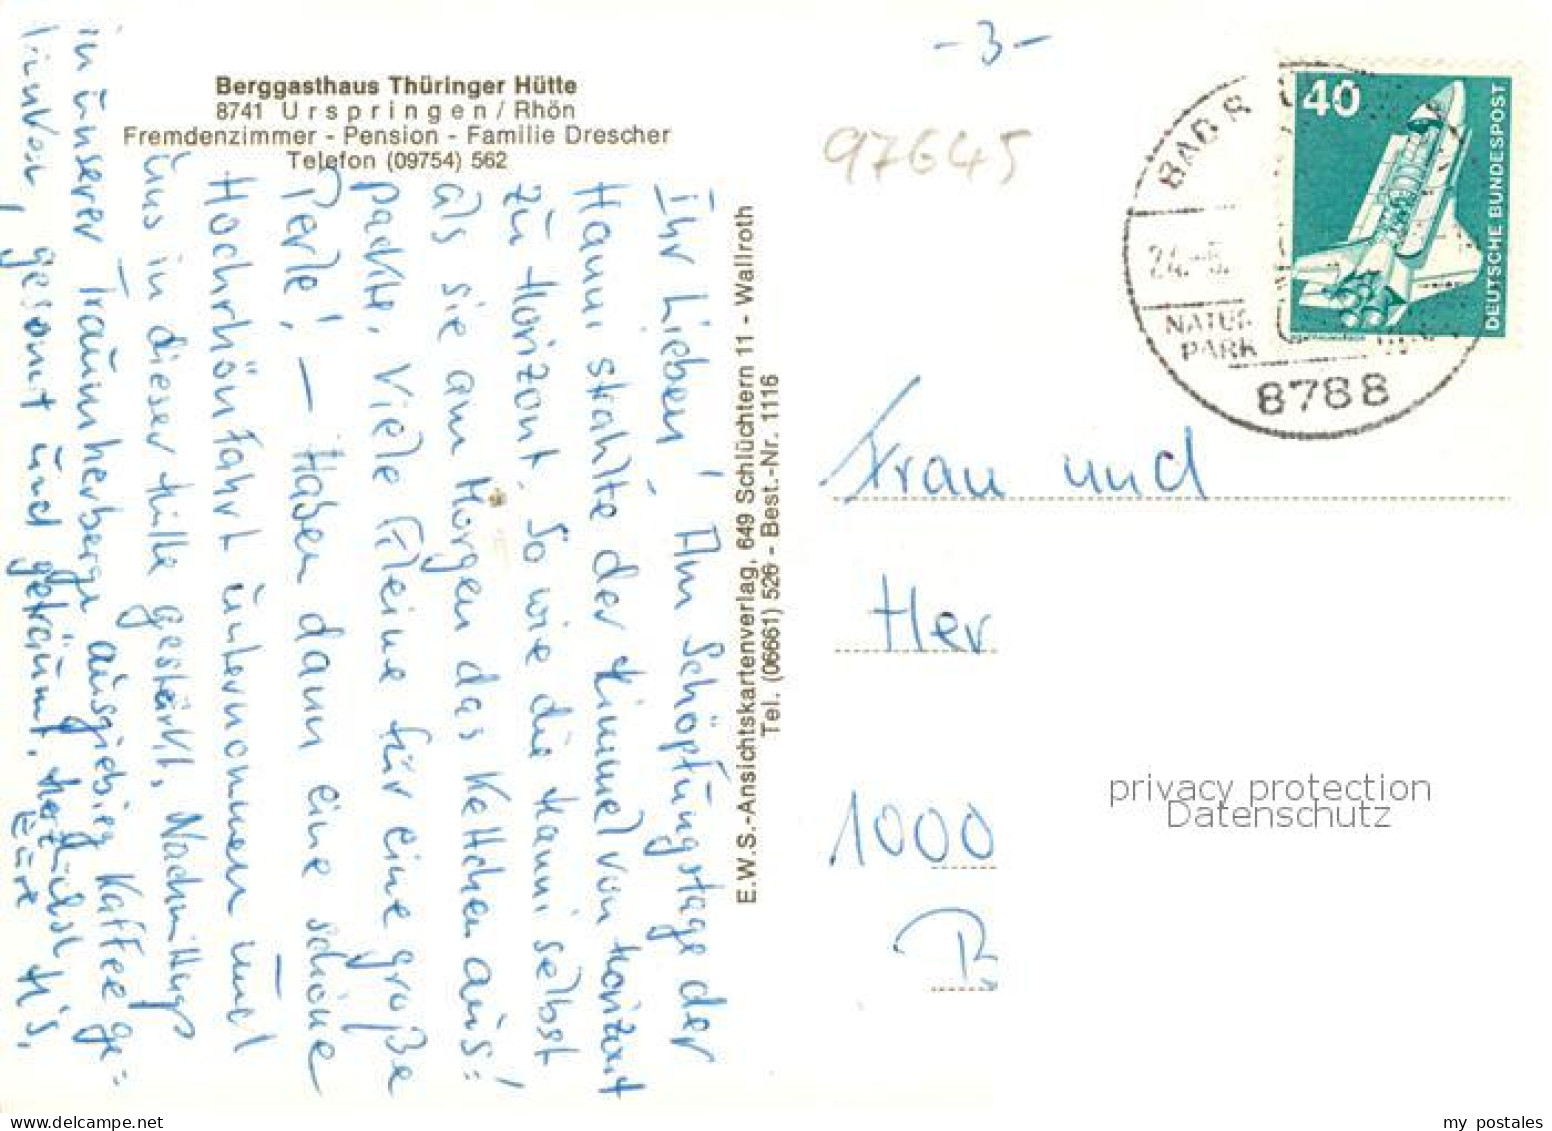 - 3 -
Berggasthaus Thüringer Hütte
8741 Urspringen / Rhön
Fremdenzimmer - Pension - Familie Drescher
Telefon (09754) 562
97645
Ihr Lieben! Am Schöpfungstage der
Hanni strahlte der Himmel von Horizont
zu Horizont. So wie die Hanni selbst
als sie am Morgen das Kettchen aus=
packte. Viele Kleine für eine große
Perle! — Haben dann eine schöne
Hochrhönfahrt unternommen und
uns in dieser Hütte gestärkt. Nachmittags
in unserer Traumherberge ausgiebig Kaffee ge=
trunken, gesonnt und geträumt. Herzlichst
Eure H's.
E.W.S.-Ansichtskartenverlag, 649 Schlüchtern 11 - Wallroth
Tel. (06661) 526 - Best.-Nr. 1116
BAD B
24.-5.
NATUR
PARK
8788
40
DEUTSCHE BUNDESPOST
Frau und
Her
1000
B
privacy protection
Datenschutz
my postales